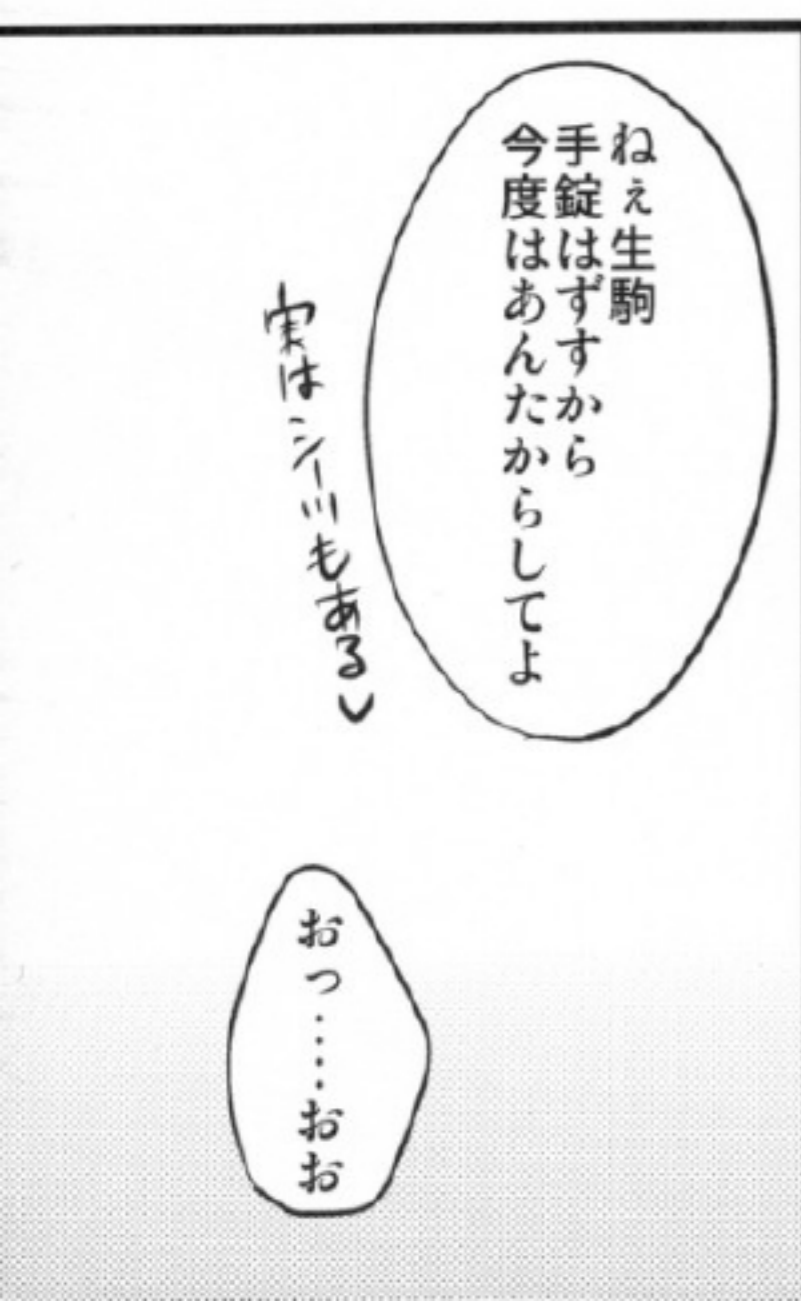 ねぇ生駒
手錠はずすから
今度はあんたからしてよ
実はシールもある♥
おっ……おお